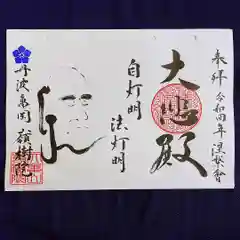 奉拝 令和四年 涅槃会
大悲殿
自灯明
法灯明
丹波亀岡 嶺樹院